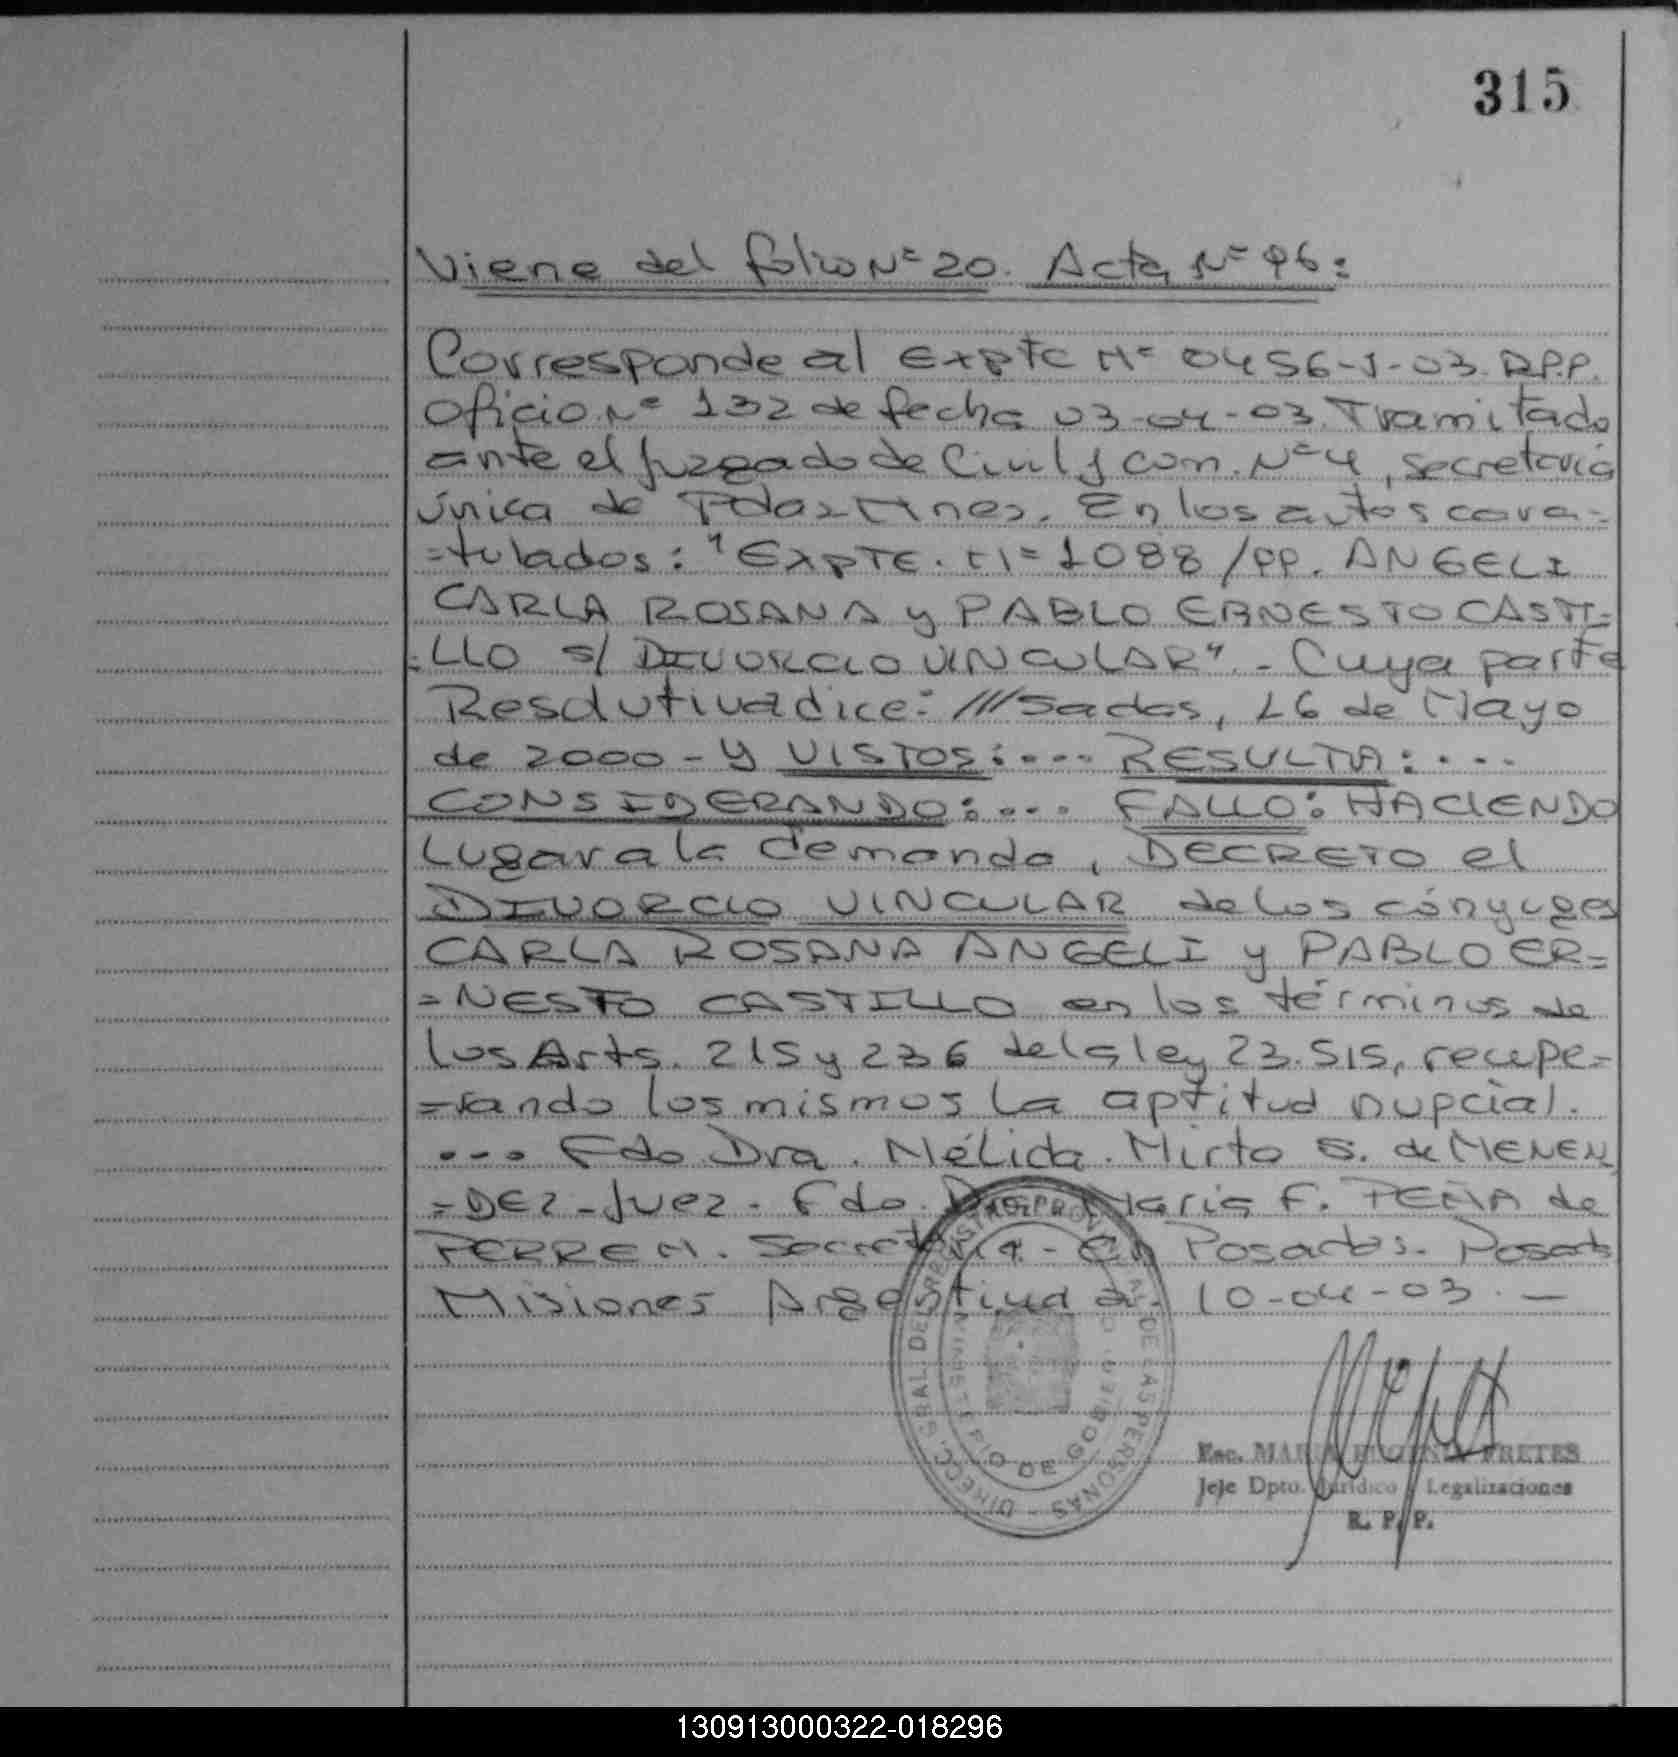 315
Viene del folio Nº 20. Acta Nº 96:
Corresponde al Expte Nº 0456-J-03. R.P.P.
Oficio Nº 132 de fecha 03-04-03. Tramitado
ante el juzgado de Civil y Com. Nº 4, secretaria
única de Pdas-Mnes. En los autos cara-
-tulados: "EXPTE. Nº 1088/99. ANGELI
CARLA ROSANA y PABLO ERNESTO CASTI-
-LLO s/ DIVORCIO VINCULAR". - Cuya parte
Resolutiva dice: ///sadas, 16 de Mayo
de 2000 - Y VISTOS:.... RESULTA:....
CONSIDERANDO:.... FALLO: HACIENDO
Lugar a la demanda, DECRETO el
DIVORCIO VINCULAR de los cónyuges
CARLA ROSANA ANGELI y PABLO ER=
=NESTO CASTILLO en los términos de
los Arts. 215 y 236 de la ley 23.515, recupe=
=rando los mismos la aptitud nupcial.
... Fdo Dra. Nélida. Mirta S. de MENEN
=DEZ - Juez - Fdo. Dra. Maria F. PEÑA de
Secretaria - En Posadas. Posadas
Misiones Argentina a. 10-04-03. —
DIRECC. GRAL. DEL REGISTRO PROVINCIAL DE LAS PERSONAS
MINISTERIO DE GOBIERNO
Esc. MARIA EUGENIA FRETES
Jefe Dpto. Jurídico y Legalizaciones
R. P. P.
130913000322-018296